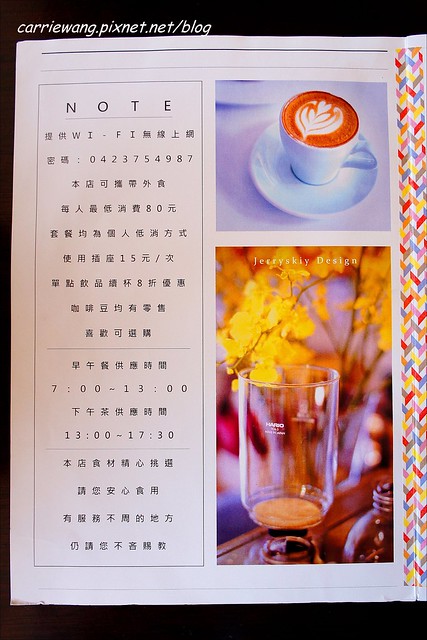 carriewang.pixnet.net/blog
NOTE
提供WI-FI無線上網
密碼：0423754987
本店可攜帶外食
每人最低消費80元
套餐均為個人低消方式
使用插座15元/次
單點飲品續杯8折優惠
咖啡豆均有零售
喜歡可選購
早午餐供應時間
7：00~13：00
下午茶供應時間
13:00~17:30
本店食材精心挑選
請您安心食用
有服務不周的地方
仍請您不吝賜教
Jerryskiy Design
HARIO